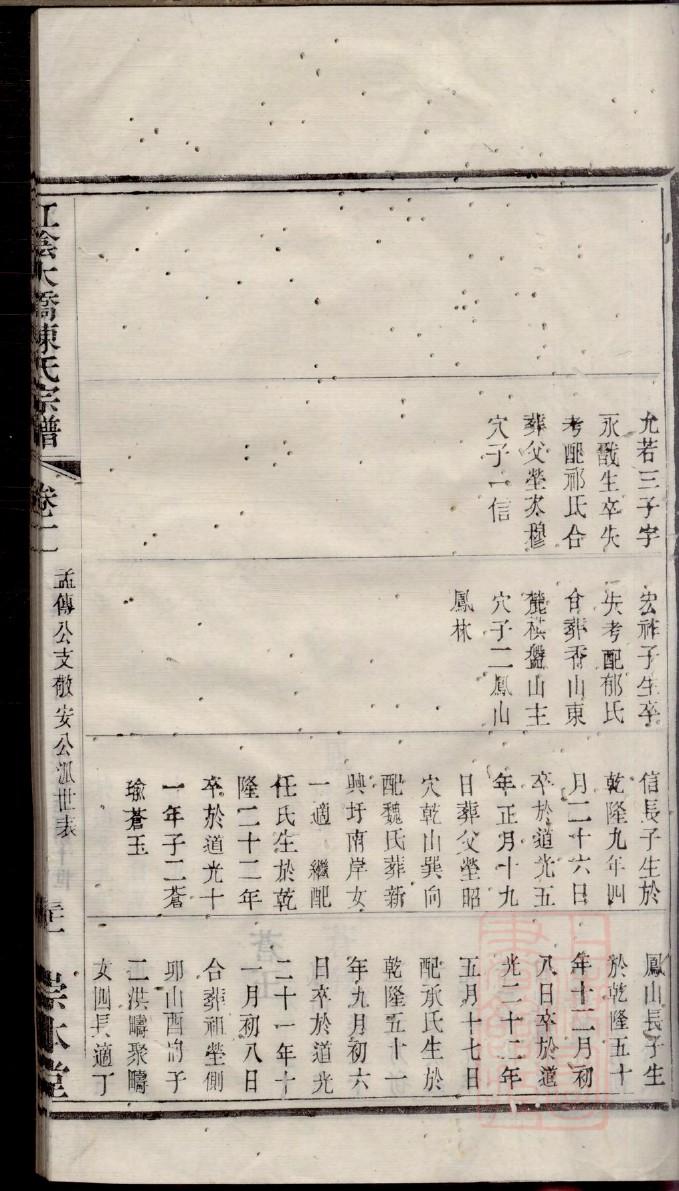 允若三子字
永戩生卒失
考配祁氏合
葬父塋次穆
穴子一信
宏祚子生卒
失考配郁氏
合葬香山東
麓横盤山主
穴子二鳳山
鳳林
信長子生於
乾隆九年四
月二十六日
卒於道光五
年正月十九
日葬父塋昭
穴乾山巽向
配魏氏葬新
興圩南岸女
一適 繼配
任氏生於乾
隆二十二年
卒於道光十
一年子二蒼
瑜蒼玉
鳳山長子生
於乾隆五十
年十二月初
八日卒於道
光二十二年
五月十七日
配承氏生於
乾隆五十一
年九月初六
日卒於道光
二十一年十
一月初八日
合葬祖塋側
卯山酉向子
二洪疇聚疇
女四長適丁
江陰大橋陳氏宗譜
卷十二
孟傳公支敬安公派世表
崇本堂